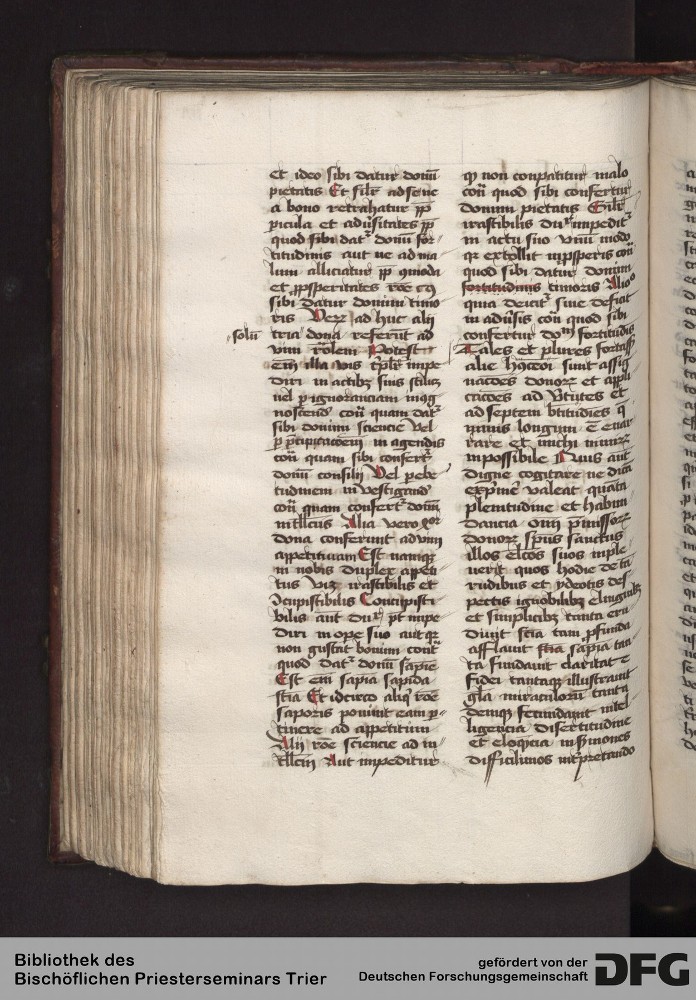 et ideo sibi datur donū
pietatis Et silr̄ ad seue
a bono retrahatur ꝓp̄
picula et adūsitates ꝓp̄
quod sibi datꝛ donū for-
titudinis aut ne ad ma
lum alliciatur ꝓp̄ ꝯmoda
et ꝓsperitates rōe cꝰ
sibi datur donum timo
ris Verꝝ ad huc alij
solū
tria dona referūt ad
vim rōlem Potest
em̄ illa vis tꝑlr̄ impe
diri in actibꝫ suis scilicꝫ
uel ꝑ ignoranciam mag
noscend cōū quam datꝛ
sibi donum sciencie Vel
ꝑ p̄cipitacōem̄ in agendis
cōū quam sibi confertꝛ
donū consilij Vel ꝑ ebe
tudinem in vestigand
cōū quam confertꝛ donū
intllcūs Alia vero ꝗor
dona conferunt ad vim
appetitiuam Est namque
in nobis duplex appeti
tus viꝫ irascibilis et
ꝯcupiscibilis Concupisci
bilis aut duꝛ pt̄ impe
diri in ope suo aut qꝛ
non gustat bonum contꝛ
quod datꝛ donū sapie
Est em̄ sapia sapida
scia Et idcirco aliqͥ rōe
saporis ponunt eam ꝑ-
tinere ad appetitum
Alij rōe sciencie ad in-
tllcm̄ Aut impeditur
ꝙ non conpatitur malo
cōū quod sibi confertur
donum pietatis Et silr̄
irascibilis duꝛ impeditꝛ
in actu suo vnū modo
qꝛ extollit in ꝓsperis cōū
quod sibi datur donum
fortitudinis timoris Alioͦ
quia deicitꝛ siue deficit
in adūsis cōū quod sibi
confertur doͫ fortitudīs
Tales et plures fortass
alie hāc sunt assig
nacōes donoꝝ et appli
cacōes ad v̄tutes et
ad septem btītudies ꝗ
nimis longum ē enar
rare et michi nimis
inpossibile Quis aut
digne cogitare ne dicā
exp̄me valeat quāta
plenitudine et habun
dancia omi pinissoꝝ
donoꝝ spūs sanctus
illos elcōs suos imple
uerit quos hodie de tā
rudibus et ydeotis des
pectis ignobilibꝫ
et simplicibꝫ tanta eru
diuit scia tam ꝓfunda
afflauit scia sapia tan
ta fundauit claritate
fidei tantaqꝫ illustrauit
gla miraculorū tanta
demqꝫ fecundauit intel
ligencia disertitudine
et eloqncia in s̄mones
difficilimos int̄pretando
Bibliothek des
Bischöflichen Priesterseminars Trier
gefördert von der
Deutschen Forschungsgemeinschaft
DFG